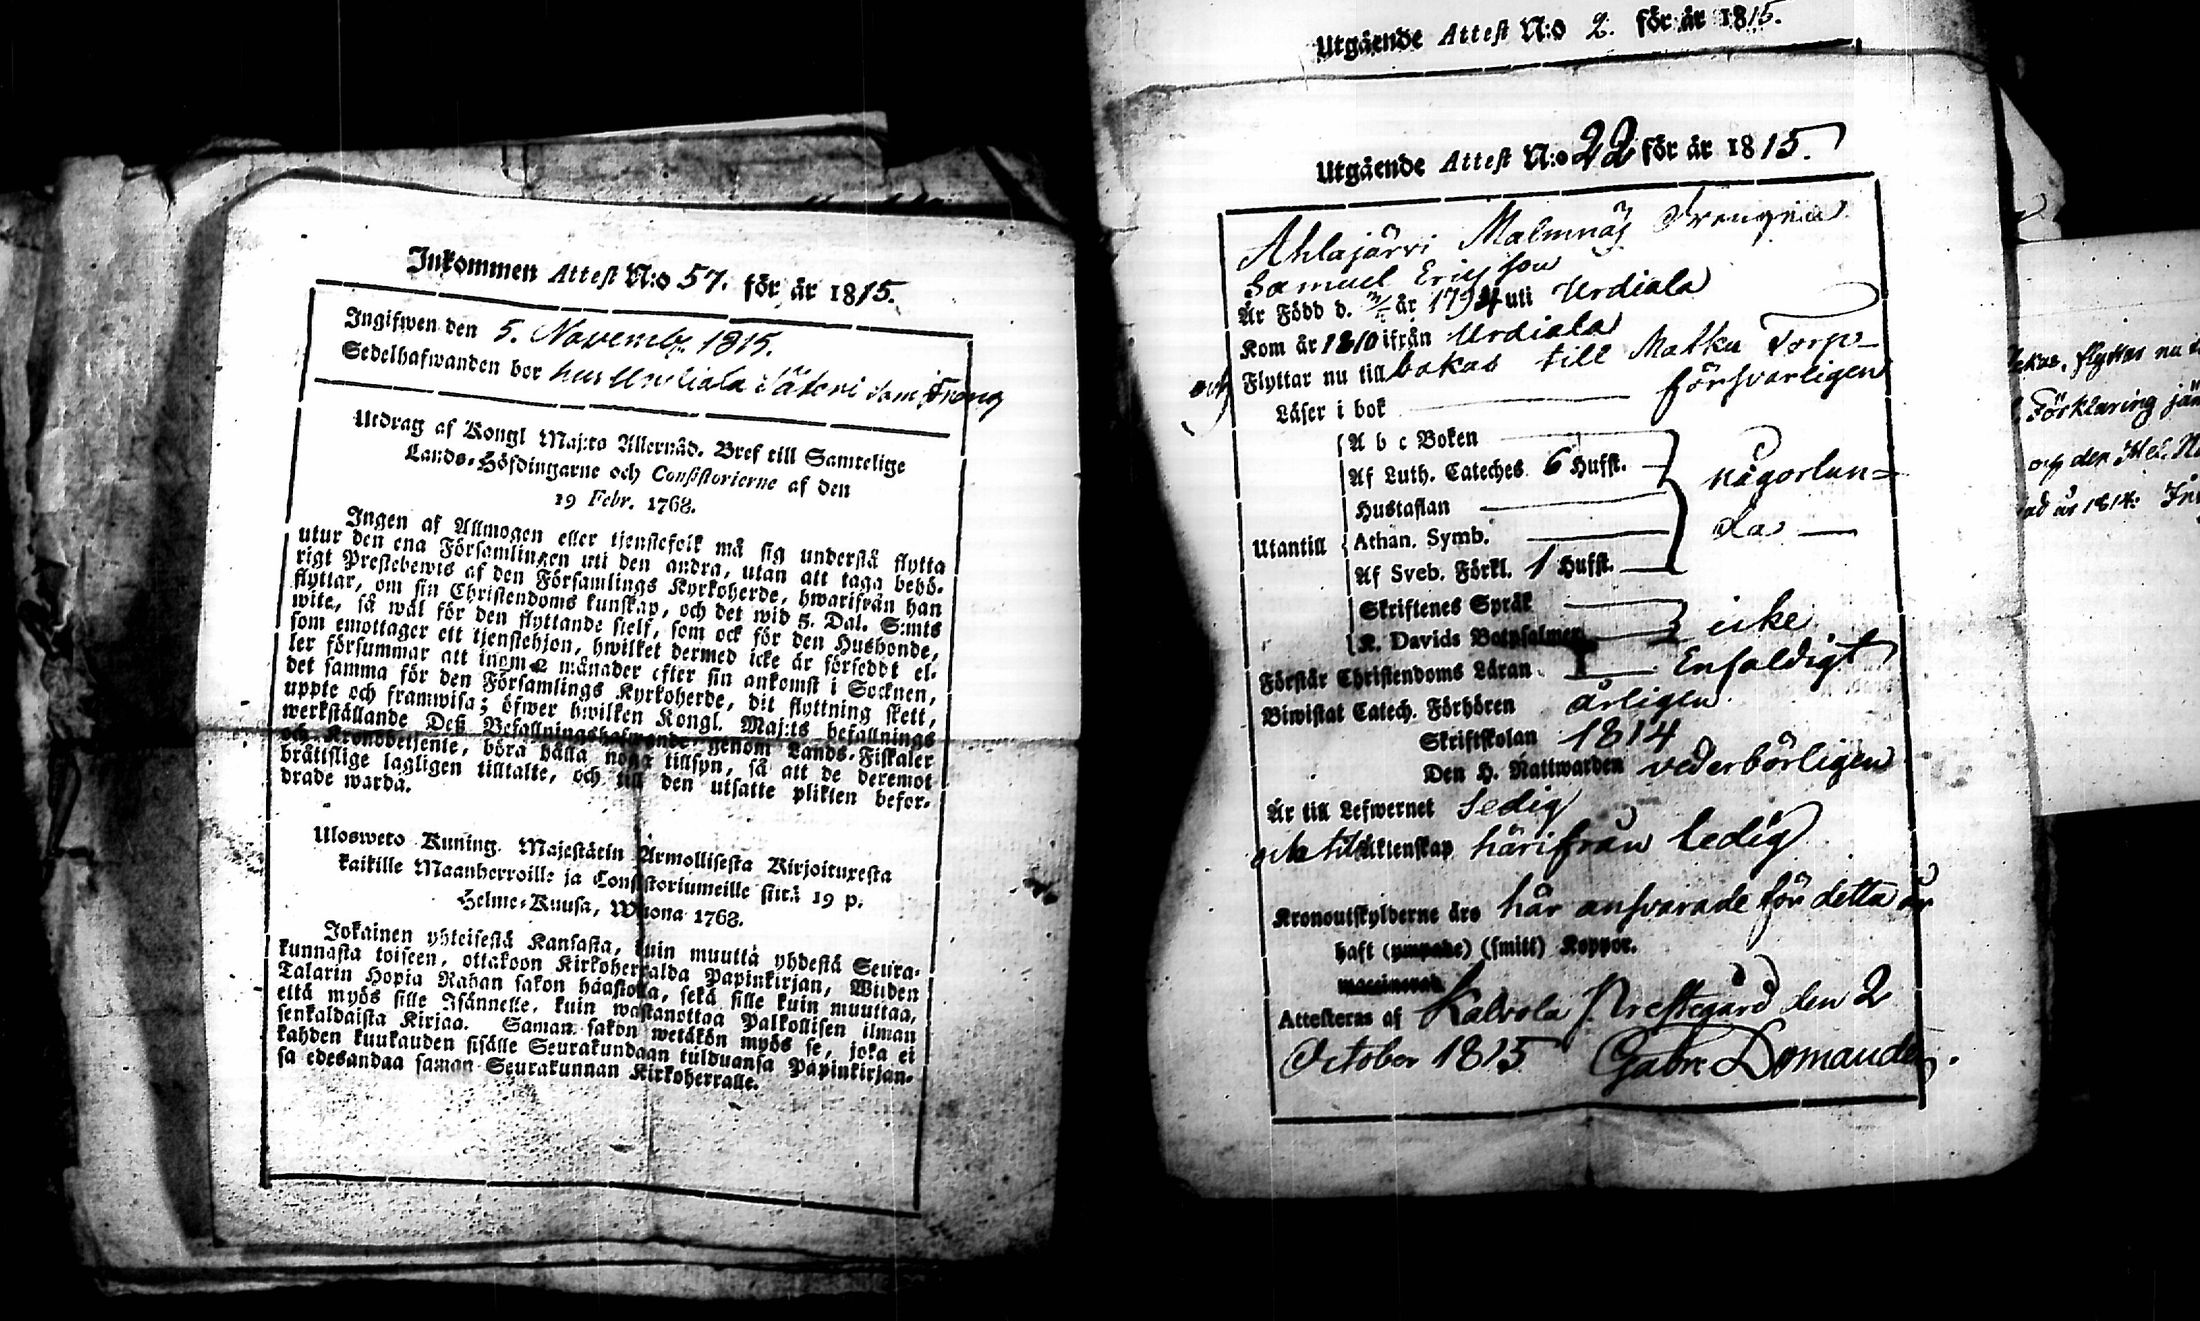 Inkommen Attest N:o 57. för år 1815.
Ingifwen den 5. Novembr. 1815.
Sedelhafwanden bor hus Urdiala Säteri som Dreng
Utdrag af Kongl Maj:ts Allernåd. Bref till Samtelige
Lands-Höfdingarne och Consistorierne af den
19 Febr. 1768.
Ingen af Allmogen eller tjenstefolk må sig understå flytta
utur den ena Församlingen uti den andra, utan att taga behö-
rigt Prestebewis af den Församlings Kyrkoherde, hwarifrån han
flyttar, om sin Christendoms kunskap, och det wid 5. Dal. S:mts
wite, så wäl för den flyttande sielf, som ock för den Husbonde,
som emottager ett tjenstehjon, hwilket dermed icke är försedt el-
ler försummar att inom 2 månader efter sin ankomst i Socknen,
det samma för den Församlings Kyrkoherde, dit flyttning skett,
uppte och framwisa; öfwer hwilken Kongl. Maj:ts befallnings
werkställande Deß Befallningshafwande genom Lands-Fiskaler
och Kronobetjente, böra hålla noga tillsyn, så att de deremot
bråttslige lagligen tilltalte, och till den utsatte plikten befor-
drade warda.
Ulosweto Kuning. Majestätin Armollisesta Kirjoituxesta
kaikille Maanherroille ja Consistoriumeille siitä 19 p.
Helme-Kuusa, Wuona 1768.
Jokainen yhteisestä Kansasta, kuin muuttä yhdestä Seura-
kunnasta toiseen, ottakoon Kirkoherralda Papinkirjan, Wiiden
Talarin Hopia Rahan sakon haastolla, sekä sille kuin muuttaa,
että myös sille Isännelle, kuin wastanottaa Palkollisen ilman
senkaldaista Kirjaa. Saman sakon wetäkön myös se, joka ei
kahden kuukauden sisälle Seurakundaan tulduansa Papinkirjan-
sa edesandaa saman Seurakunnan Kirkoherralle.
Utgående Attest N:o 2. för år 1815.
Utgående Attest N:o 22 för år 1815.
Ahlajärvi Malmnäs Drengen
Samuel Ericsson
Är Född d. år 1794 uti Urdiala
Kom år 1810 ifrån Urdiala
Flyttar nu till bakas till Matku Torp
och
Läser i bok försvarligen
A b c Boken
Af Luth. Cateches 6 Hufst.
någorlun-
Hustaflan
Utantill
Athan. Symb.
da
Af Sveb. Förkl. 1 Hufst.
Skriftenes Språk
icke
K. Davids Botpsalmer
Förstår Christendoms Läran Enfaldigt
Biwistat Catech. Förhören årligen
Skriftskolan 1814
Den H. Nattwarden vederbörligen
Är till Lefwernet Sedig
och till Äktenskap härifrån ledig
Kronoutskylderne äro här ansvarade för detta år
haft (ympade) (smitt) Koppor.
Attesteras af Kalvola Prestegård den 2
October 1815 Gabr. Domander.
flyttar nu
Förklaring
och den
år 1814.